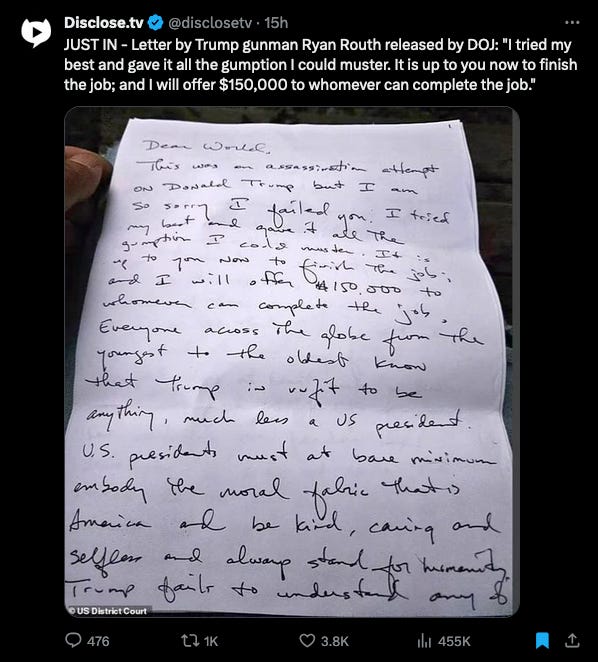 Disclose.tv @disclosetv · 15h
JUST IN - Letter by Trump gunman Ryan Routh released by DOJ: "I tried my
best and gave it all the gumption I could muster. It is up to you now to finish
the job; and I will offer $150,000 to whomever can complete the job."
Dear World,
This was an assassination attempt
on Donald Trump but I am
so sorry I failed you. I tried
my best and gave it all the
gumption I could muster. It is
up to you now to finish the job;
and I will offer $150,000 to
whomever can complete the job.
Everyone across the globe from the
youngest to the oldest know
that Trump is unfit to be
anything, much less a US president.
U.S. presidents must at bare minimum
embody the moral fabric that is
America and be kind, caring and
selfless and always stand for humanity.
Trump fails to understand any of
© US District Court
476 1K 3.8K 455K